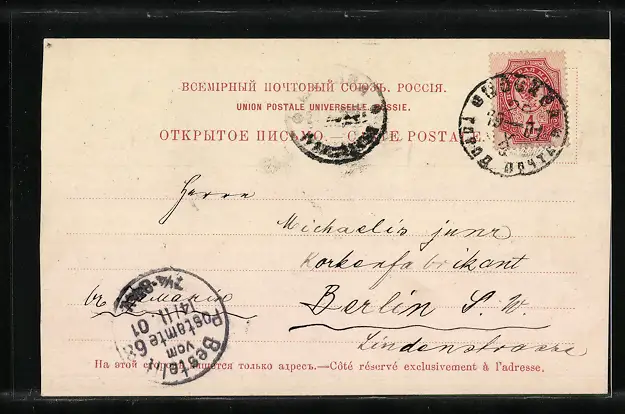 ВСЕМІРНЫЙ ПОЧТОВЫЙ СОЮЗЪ. РОССІЯ.
UNION POSTALE UNIVERSELLE. RUSSIE.
ОТКРЫТОЕ ПИСЬМО.—CARTE POSTALE
МОСКВА
4
ПОЧТА
Herrn
Michaelis junr
Korkenfabrikant
въ Германію
Berlin S. W.
Lindenstrasse
Bestellt
vom
Postamte 68
14/11 01
7¼-8½
На этой сторонѣ пишется только адресъ.—Côté réservé exclusivement à l'adresse.